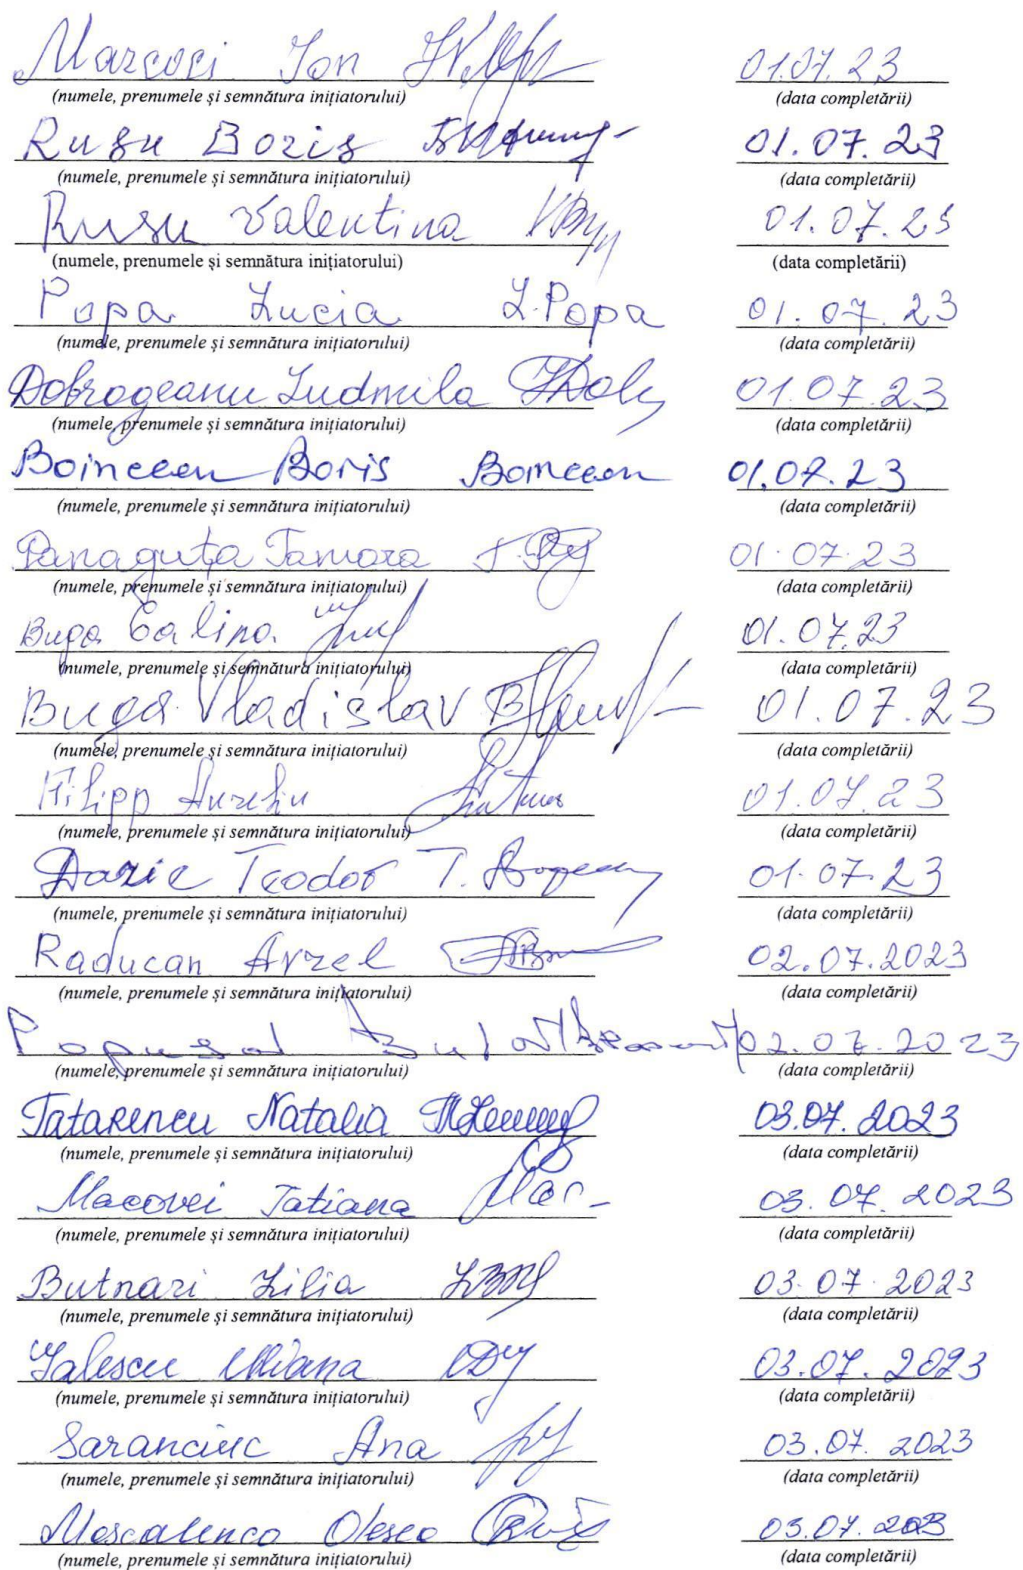 Marcoci Ion 01.07.23
(numele, prenumele și semnătura inițiatorului) (data completării)
Rusu Boris 01.07.23
(numele, prenumele și semnătura inițiatorului) (data completării)
Rusu Valentina 01.07.23
(numele, prenumele și semnătura inițiatorului) (data completării)
Popa Lucia L.Popa 01.07.23
(numele, prenumele și semnătura inițiatorului) (data completării)
Dobrogeanu Ludmila 01.07.23
(numele, prenumele și semnătura inițiatorului) (data completării)
Boincean Boris Boincean 01.07.23
(numele, prenumele și semnătura inițiatorului) (data completării)
Panaguța Tamara 01.07.23
(numele, prenumele și semnătura inițiatorului) (data completării)
Buga Galina 01.07.23
(numele, prenumele și semnătura inițiatorului) (data completării)
Buga Vladislav 01.07.23
(numele, prenumele și semnătura inițiatorului) (data completării)
Filipp Aureliu 01.07.23
(numele, prenumele și semnătura inițiatorului) (data completării)
Darie Teodor T. 01.07.23
(numele, prenumele și semnătura inițiatorului) (data completării)
Raducan Avrel 02.07.2023
(numele, prenumele și semnătura inițiatorului) (data completării)
02.07.2023
(numele, prenumele și semnătura inițiatorului) (data completării)
Tatarencu Natalia 03.07.2023
(numele, prenumele și semnătura inițiatorului) (data completării)
Macovei Tatiana 03.07.2023
(numele, prenumele și semnătura inițiatorului) (data completării)
Butnari Lilia 03.07.2023
(numele, prenumele și semnătura inițiatorului) (data completării)
03.07.2023
(numele, prenumele și semnătura inițiatorului) (data completării)
Saranciuc Ana 03.07.2023
(numele, prenumele și semnătura inițiatorului) (data completării)
Moscalenco Olesea 03.07.2023
(numele, prenumele și semnătura inițiatorului) (data completării)